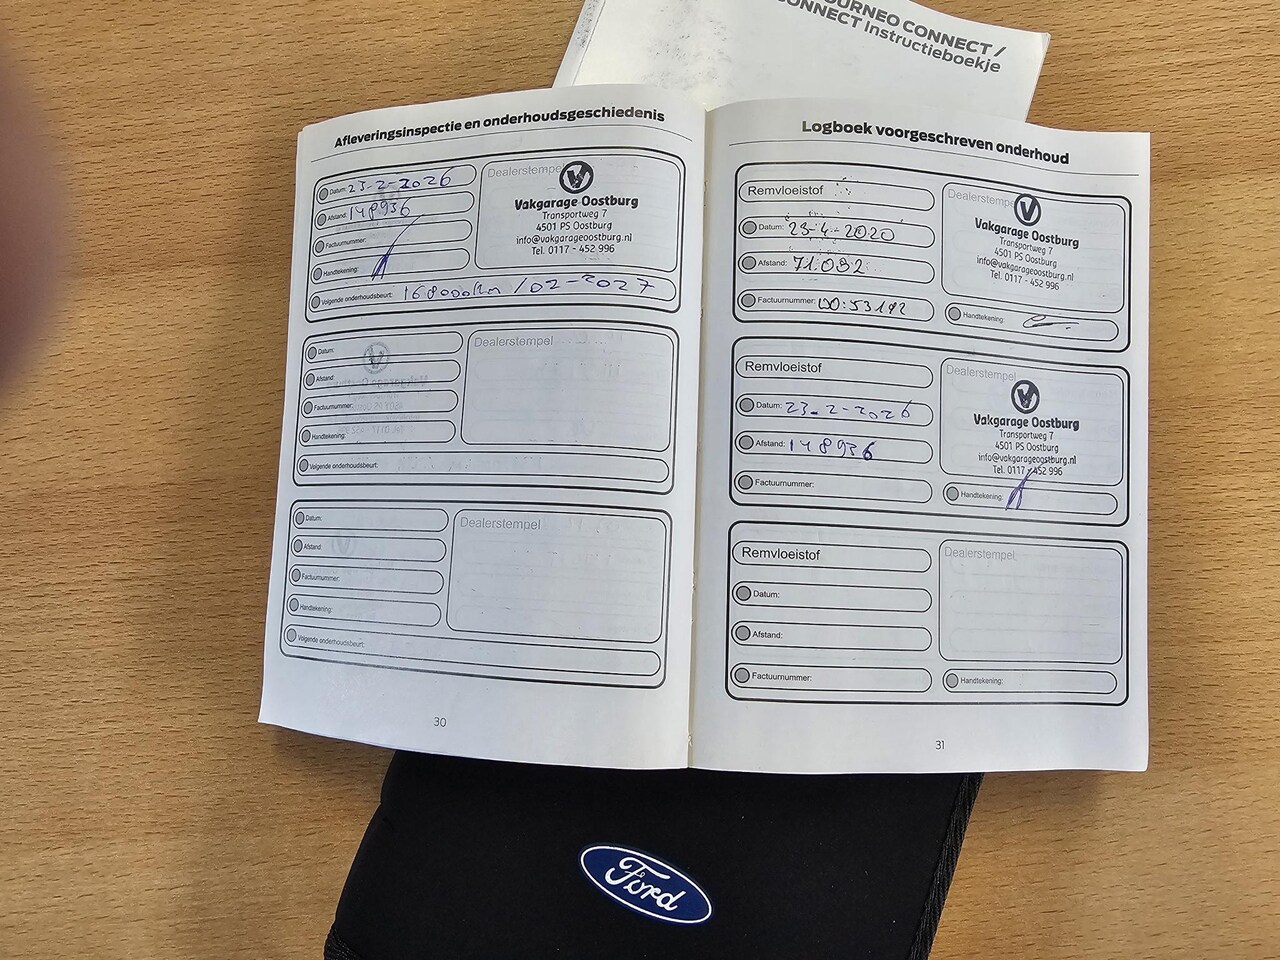 OURNEO CONNECT /
CONNECT Instructieboekje
Afleveringsinspectie en onderhoudsgeschiedenis
Datum: 23-2-2026
Afstand: 148936
Factuurnummer:
Handtekening:
Volgende onderhoudsbeurt: 168000km / 02-2027
Dealerstempel
Vakgarage Oostburg
Transportweg 7
4501 PS Oostburg
info@vakgarageoostburg.nl
Tel. 0117 - 452 996
Datum:
Afstand:
Factuurnummer:
Handtekening:
Volgende onderhoudsbeurt:
Dealerstempel
Datum:
Afstand:
Factuurnummer:
Handtekening:
Volgende onderhoudsbeurt:
Dealerstempel
30
Logboek voorgeschreven onderhoud
Remvloeistof
Datum: 23-4-2020
Afstand: 71.092
Factuurnummer:
Dealerstempel
Vakgarage Oostburg
Transportweg 7
4501 PS Oostburg
info@vakgarageoostburg.nl
Tel. 0117 - 452 996
Handtekening:
Remvloeistof
Datum: 23-2-2026
Afstand: 148936
Factuurnummer:
Dealerstempel
Vakgarage Oostburg
Transportweg 7
4501 PS Oostburg
info@vakgarageoostburg.nl
Tel. 0117 - 452 996
Handtekening:
Remvloeistof
Datum:
Afstand:
Factuurnummer:
Dealerstempel
Handtekening:
31
Ford